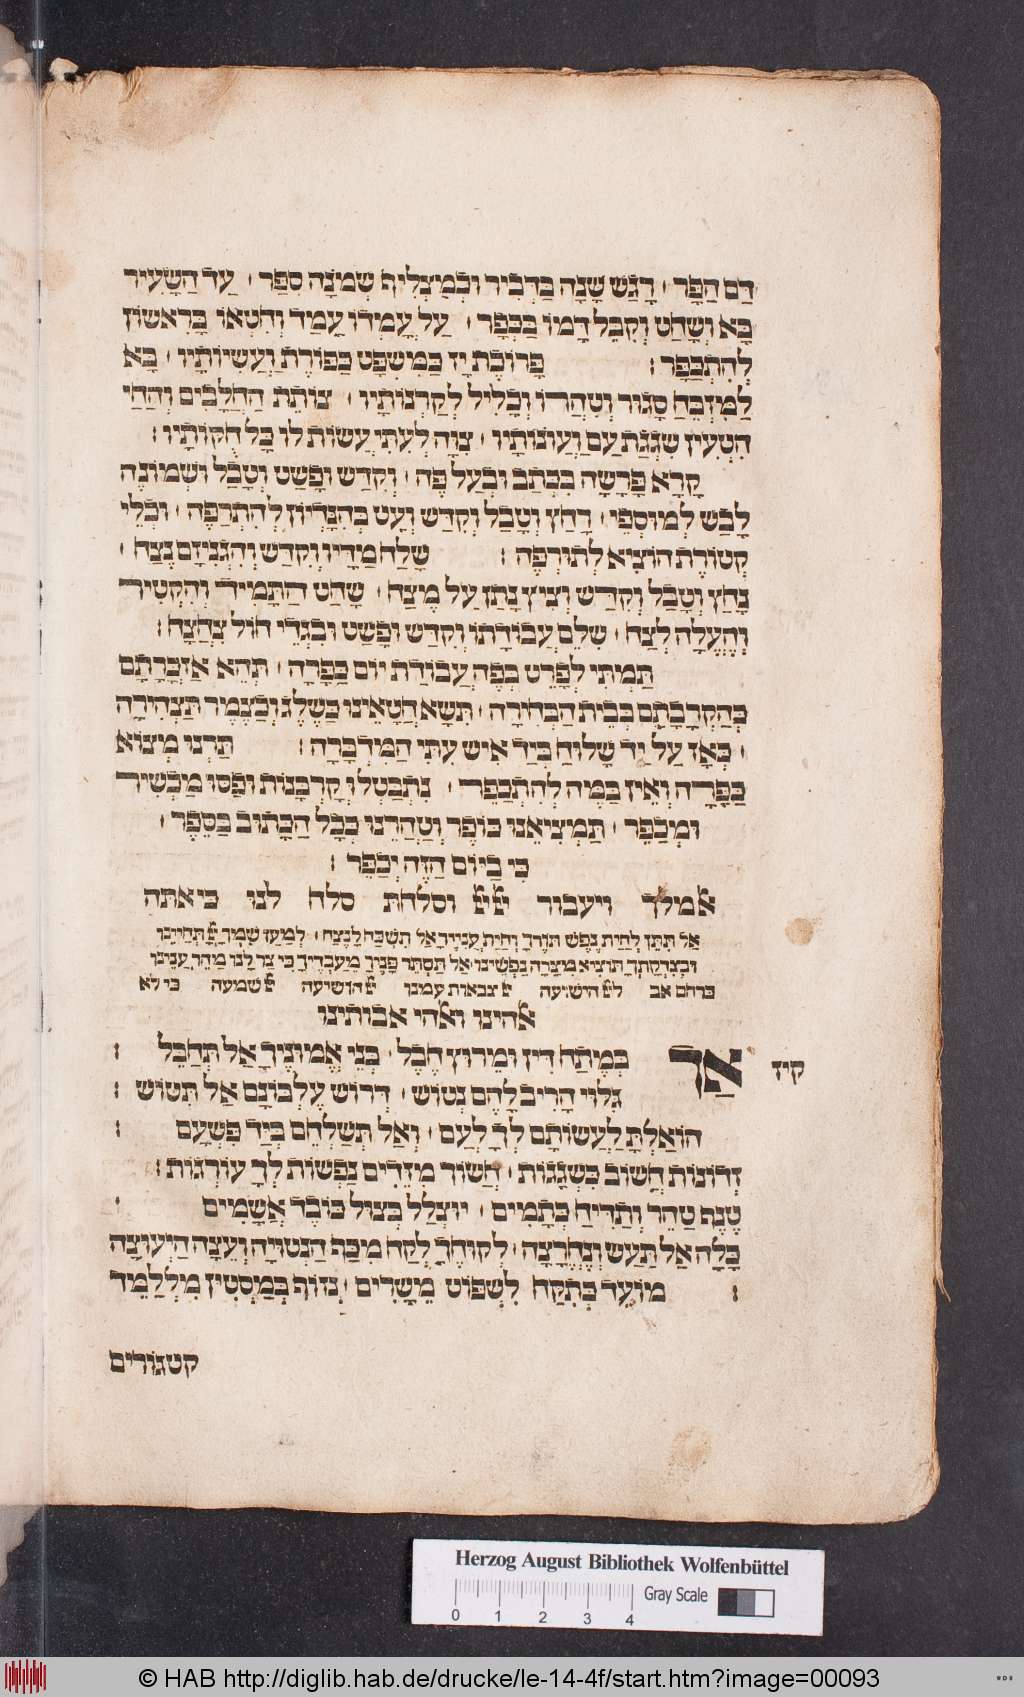 דַם הַפָּר׳ דָגַש שֵנָה בַּדְבִיר וּכְמַצְלִיף שְמוֹנָה סִפֵּר׳ עַד הַשָעִיר
בָּא וְשָחַט וְקִבֵּל דָמוֹ בַּכְּפָר׳ עַל עָמְדוֹ עָמַד וְחִטְאוֹ כָּרִאשוֹן
לְהִתְכַּפֵּר : פָּרוֹכֶת יַז כַּמִשְפָּט כַּפּוֹרֶת וַעֲשִיוֹתָיו׳ בָּא
לַמִזְבֵּחַ סָגוּר וְטִהֲרוֹ וְכָלִיל לְקַרְנוֹתָיו׳ צוֹתֵת הַחֲלָבִים וְהַחַי
הִטְעִין שִגְגַת עַם וַעֲוֹנוֹתָיו׳ צִוָּה לְעִתִּי עֲשוֹת לוֹ כָּל חֻקּוֹתָיו :
קָרָא פָּרָשָה בִּכְתַב וּבְעַל פֶּה׳ וְקִדֵש וּפָשַט וְטָבַל וּשְמוֹנֶה
לָבַש לְמוּסְפֵי׳ רָחַץ וְטָבַל וְקִדֵש וְעָט כְּהִנָּדְיוֹן לְהִתְרַפֵּה׳ וּכְלֵי
קְטוֹרֶת הוֹצִיא לְתוּרְפֶּה : שָלַח מַדָּיו וְקִדֵש וְהִגְנִיזָם נֶצַח׳
נָחַץ וְטָבַל וְקִדֵש וְצִיץ נָתַן עַל מֶצַח׳ שָחַט הַתָּמִיד וְהִקְטִיר
וְהֶעֱלָה לָצַח׳ שִלֵם עֲבוֹדָתוֹ וְקִדֵש וּפָשַט וּבִגְדֵי חוֹל צִחְצַח :
תַּמְתִּי לְפָרֵט בְּפֶה עֲבוֹדַת יוֹם כַּפָּרָה׳ תְּהֵא אַזְכָּרָתָם
כְּהַקְרָבָתָם בְּבֵית הַבְּחוּרָה׳ תִּשָא חֲטָאֵינוּ כַּשֶלֶג וּכְצֶמֶר תַּצְהִירָה
׳ כְּאָז עַל יַד שָלוּחַ בְּיַד אִיש עִתִּי הַמִּדְבָּרָה : תַּרְנוּ מְצוֹא
כַּפָּרָה וְאֵין בַּמֶּה לְהִתְכַּפֵּר׳ נִתְבַּטְלוּ קָרְבָּנוֹת וּפַסוּ מַכְשִיר
וּמְכַפֵּר׳ תַּמְצִיאֵנוּ כּוֹפֶר וְטַהֲרֵנוּ כְּכָל הַכָּתוּב בַּסֵּפֶר׳
כִּי בַיּוֹם הַזֶּה יְכַפֵּר :
אל מלך ויעבור יי יי וסלחת סלח לנו כי אתה
אַל תִּתֵּן לְחַיַּת נֶפֶש תּוֹרֶךָ וְחַיַּת עֲנִיֶּיךָ אַל תִּשְכַּח לָנֶצַח׳ לְמַעַן שִמְךָ יְיָ תְּחַיֵּינוּ
וּבְצִדְקָתְךָ תּוֹצִיא מִצָּרָה נַפְשֵינוּ׳ אַל תַּסְתֵּר פָּנֶיךָ מֵעֲבָדֶיךָ כִּי צַר לָנוּ מַהֵר עֲנֵינוּ
כרחם אב ליי הישועה יי צבאות עמנו יי הושיעה יי שמעה כי לא
אלהינו ואלהי אבותינו
קיז אַךְ בְּמֶתַח דִּין וּמֵרוּץ הֶבֶל׳ בְּנֵי אֱמוּנֶיךָ אַל תְּחַבֵּל :
גִּלּוּי הָרִיב לָהֶם נְטוֹש׳ דְּרוֹש עֶלְבּוֹנָם אַל תִּטּוֹש :
הוֹאַלְתָּ לַעֲשוֹתָם לְךָ לְעַם׳ וְאַל תְּשַלְּחֵם בְּיַד פִּשְעָם :
זְדוֹנוֹת חֲשוֹב כִּשְגָגוֹת׳ חֲשׂוֹךְ מִזֵּדִים נְפָשוֹת לְךָ עוֹרְגוֹת :
טֶנֶף טַהֵר וְתָדִיחַ כְּתָמִים׳ יוּצְלַל בְּצוּל כּוֹבֶד אֲשָמִים׳
כָּלָה אַל תַּעַשׂ וְנֶחֱרָצָה׳ לְקוּחֶךָ לְקַח מִכַּף הַנְּטוּיָה וְעֵצָה הַיְעוּצָה
: מוֹעֵד בְּתִקַּח לִשְפּוֹט מֵשָרִים׳ נְזוֹף בְּמַסְטִין מִלְלַמֵּד
קטגורים
Herzog August Bibliothek Wolfenbüttel
0 1 2 3 4 Gray Scale
© HAB http://diglib.hab.de/drucke/le-14-4f/start.htm?image=00093